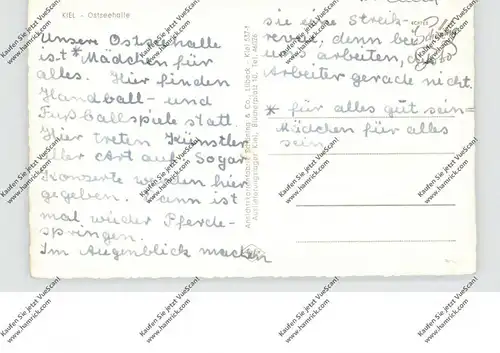 KIEL - Ostseehalle
Unsere Ostseehalle
ist * Mädchen für
alles. Hier finden
Handball - und
Fußballspiele statt.
Hier treten Künstler
aller Art auf. Sogar
Konzerte werden hier
gegeben. Dann ist
mal wieder Pferde-
springen.
Im Augenblick machen
sie eine Streik-
denn bei
uns arbeiten, die
Arbeiter gerade nicht.
* für alles gut sein =
Mädchen für alles
sein
Kaufen Sie jetzt! Powered by VueScan!
www.hamrick.com